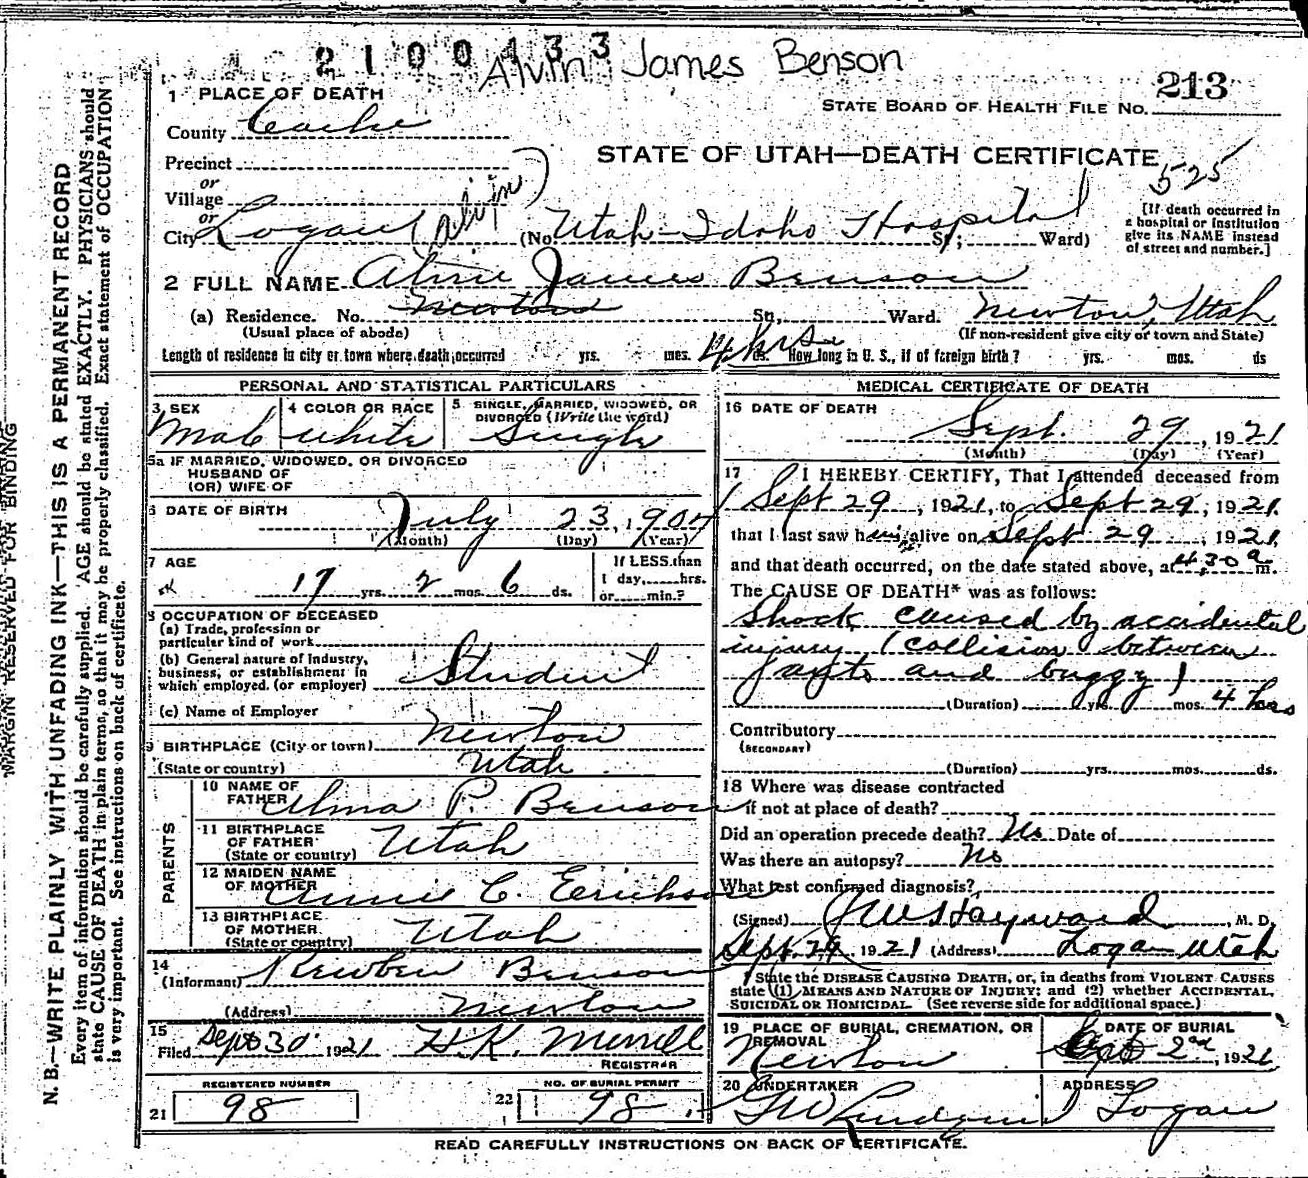 2100433
Alvin James Benson
213
STATE BOARD OF HEALTH FILE NO.
1 PLACE OF DEATH
County Cache
STATE OF UTAH—DEATH CERTIFICATE
525
Precinct
or
Village
or
City Logan (alvin) (No. Utah-Idaho Hospital St.; Ward)
[If death occurred in
a hospital or institution
give its NAME instead
of street and number.]
2 FULL NAME Alvie James Benson
(a) Residence. No. Newton St., Ward. Newton, Utah
(Usual place of abode) (If non-resident give city or town and State)
Length of residence in city or town where death occurred yrs. mos. 4 hrs ds. How long in U. S., if of foreign birth? yrs. mos. ds
PERSONAL AND STATISTICAL PARTICULARS
3 SEX
Male
4 COLOR OR RACE
White
5 SINGLE, MARRIED, WIDOWED, OR
DIVORCED (Write the word)
Single
5a IF MARRIED, WIDOWED, OR DIVORCED
HUSBAND OF
(OR) WIFE OF
6 DATE OF BIRTH
July 23, 1904
(Month) (Day) (Year)
7 AGE
17 yrs. 2 mos. 6 ds.
If LESS than
1 day, hrs.
or min.?
8 OCCUPATION OF DECEASED
(a) Trade, profession or
particular kind of work
(b) General nature of Industry,
business, or establishment in
which employed. (or employer) Student
(c) Name of Employer
9 BIRTHPLACE (City or town) Newton
(State or country) Utah
PARENTS
10 NAME OF
FATHER Alma P. Benson
11 BIRTHPLACE
OF FATHER
(State or country) Utah
12 MAIDEN NAME
OF MOTHER Annie C. Erickson
13 BIRTHPLACE
OF MOTHER
(State or country) Utah
14
(Informant) Reuben Benson
(Address) Newton
15
Filed Sept 30 1921 H.K. Merrill
REGISTRAR
REGISTERED NUMBER
21 98
NO. OF BURIAL PERMIT
22 98
MEDICAL CERTIFICATE OF DEATH
16 DATE OF DEATH
Sept 29, 1921
(Month) (Day) (Year)
17 I HEREBY CERTIFY, That I attended deceased from
Sept 29, 1921, to Sept 29, 1921
that I last saw him alive on Sept 29, 1921,
and that death occurred, on the date stated above, at 4,30 a m.
The CAUSE OF DEATH* was as follows:
Shock caused by accidental
injury (collision between
auto and buggy)
(Duration) yrs. mos. 4 hrs
Contributory
(SECONDARY)
(Duration) yrs. mos. ds.
18 Where was disease contracted
if not at place of death?
Did an operation precede death? No Date of
Was there an autopsy? No
What test confirmed diagnosis?
(Signed) J W Hayward, M. D.
Sept. 29, 1921 (Address) Logan Utah
* State the DISEASE CAUSING DEATH, or, in deaths from VIOLENT CAUSES
state (1) MEANS AND NATURE OF INJURY; and (2) whether ACCIDENTAL,
SUICIDAL OR HOMICIDAL. (See reverse side for additional space.)
19 PLACE OF BURIAL, CREMATION, OR
REMOVAL
Newton
DATE OF BURIAL
2nd, 1921
20 UNDERTAKER
G W Lindquist
ADDRESS
Logan
READ CAREFULLY INSTRUCTIONS ON BACK OF CERTIFICATE.
MARGIN RESERVED FOR BINDING
N. B.—WRITE PLAINLY WITH UNFADING INK—THIS IS A PERMANENT RECORD
Every item of information should be carefully supplied. AGE should be stated EXACTLY. PHYSICIANS should
state CAUSE OF DEATH in plain terms, so that it may be properly classified. Exact statement of OCCUPATION
is very important. See instructions on back of certificate.